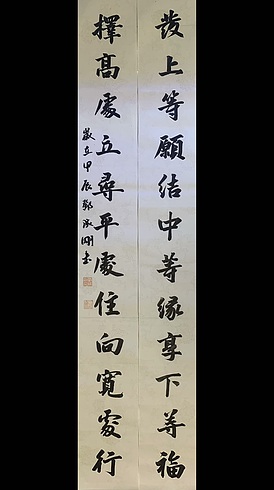 發上等願結中等緣享下等福
擇高處立尋平處住向寬處行
歲在甲辰